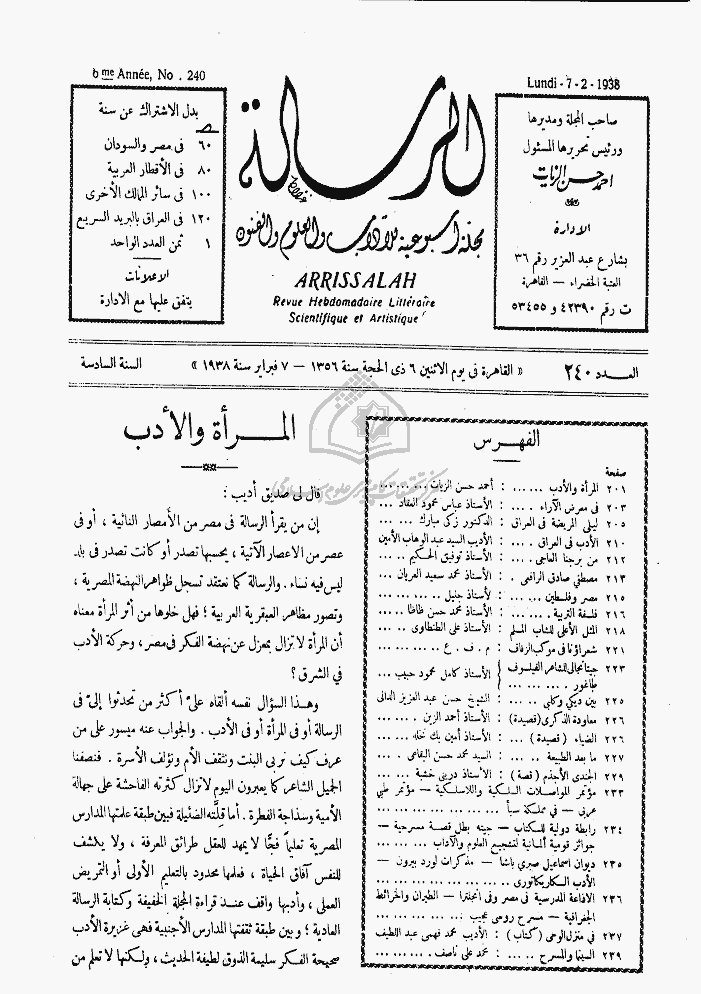 6me Année, No. 240
Lundi - 7 - 2 - 1938
بدل الاشتراك عن سنة
٦٠ فى مصر والسودان
٨٠ فى الأقطار العربية
١٠٠ فى سائر الممالك الأخرى
١٢٠ فى العراق بالبريد السريع
١ ثمن العدد الواحد
الاعلانات
يتفق عليها مع الادارة
الرسالة
مجلة أسبوعية للآداب والعلوم والفنون
ARRISSALAH
Revue Hebdomadaire Littéraire
Scientifique et Artistique
صاحب المجلة ومديرها
ورئيس تحريرها المسئول
احمد حسن الزيات
الادارة
بشارع عبد العزيز رقم ٣٦
العتبة الخضراء — القاهرة
ت رقم ٤٢٣٩٠ و ٥٣٤٥٥
العـــدد ٢٤٠
« القاهرة فى يوم الاثنين ٦ ذى الحجة سنة ١٣٥٦ — ٧ فبراير سنة ١٩٣٨ »
السنة السادسة
الفهرس
صفحة
٢٠١ المرأة والأدب ... ... : أحمد حسن الزيات ... ... ...
٢٠٣ فى معرض الآراء ... : الأستاذ عباس محمود العقاد ...
٢٠٥ ليلى المريضة فى العراق : الدكتور زكى مبارك ... ...
٢١٠ الأدب فى العراق ... : الأديب السيد عبد الوهاب الأمين
٢١٢ من برجنا العاجى ... : الأستاذ توفيق الحكيم ... ...
٢١٣ مصطفى صادق الرافعى . : الأستاذ محمد سعيد العريان ...
٢١٥ مصر وفلسطين ... ... : لأستاذ جليل ... ... ...
٢١٦ فلسفة التربية ... ... : الأستاذ محمد حسن ظاظا ... ...
٢١٨ المثل الأعلى للشاب المسلم : الأستاذ على الطنطاوى ... ...
٢٢١ شعراؤنا فى موكب الزفاف : م . ف . ع ... ... ...
٢٢٣ جيتانجالى للشاعر الفيلسوف طاغور ... ... : الأستاذ كامل محمود حبيب ...
٢٢٥ بين ديكى وكلبى ... ... : الشيخ حسن عبد العزيز الدالى
٢٢٦ معاودة الذكرى (قصيدة) : الأستاذ أحمد الزين ... ...
٢٢٦ الضياء (قصيدة) ... : الأستاذ أمين بك نخله ... ...
٢٢٧ ما بعد الطبيعة ... ... : السيد محمد حسن البقاعى ...
٢٢٩ الجندى الأجذم (قصة) : الأستاذ درينى خشبة ... ...
٢٣٣ مؤتمر للمواصلات السلكية واللاسلكية — مؤتمر طبى
عربى — فى مملكة سبأ ... ... ...
٢٣٤ رابطة دولية للكتاب — جيته بطل قصة مسرحية —
جوائز قومية ألمانية لتشجيع العلوم والآداب ...
٢٣٥ ديوان اسماعيل صبرى باشا — مذكرات لورد بيرون —
الأدب الكاريكاتورى ... ... ...
٢٣٦ الاذاعة المدرسية فى مصر وفى انجلترا — الطيران والخرائط
الجغرافية — مسرح رومى عجيب ... ... ...
٢٣٧ فى منزل الوحى (كتاب) : الأديب محمد فهمى عبد اللطيف
٢٣٩ السينما والمسرح ... ... : محمد على ناصف ... ...
المـــرأة والأدب
قال لى صديق أديب :
إن من يقرأ الرسالة فى مصر من الأمصار النائية ، أو فى
عصر من الاعصار الآتية ، يحسبها تصدر أو كانت تصدر فى بلد
ليس فيه نساء . والرسالة كما نعتقد تسجل ظواهر النهضة المصرية ،
وتصور مظاهر العبقرية العربية ؛ فهل خلوها من أثر المرأة معناه
أن المرأة لا تزال بمعزل عن نهضة الفكر فى مصر ، وحركة الأدب
فى الشرق ؟
وهــذا السؤال نفسه ألقاه علىّ أكثر من تحدثوا إلىّ فى
الرسالة أو فى المرأة أو فى الأدب . والجواب عنه ميسور على من
عرف كيف نربى البنت ونثقف الأم ونؤلف الأسرة . فنصفنا
الجميل الشاعر كما يعبرون اليوم لا تزال كثرته الفاحشة على جهالة
الأمية وسذاجة الفطرة . أما قلَّته الضئيلة فبين طبقة علمتها المدارس
المصرية تعليماً فجًّا لا يمهد للعقل طرائق المعرفة ، ولا يكشف
للنفس آفاق الحياة ، فعلمها محدود بالتعليم الأولى أو التمريض
العملى ، وأدبها واقف عنــد قراءة المجلة الخفيفة وكتابة الرسالة
العادية ؛ وبين طبقة ثقفتها المدارس الأجنبية فهى غزيرة الأدب
صحيحة الفكر سليمة الذوق لطيفة الحديث ، ولكنها لا تعلم من